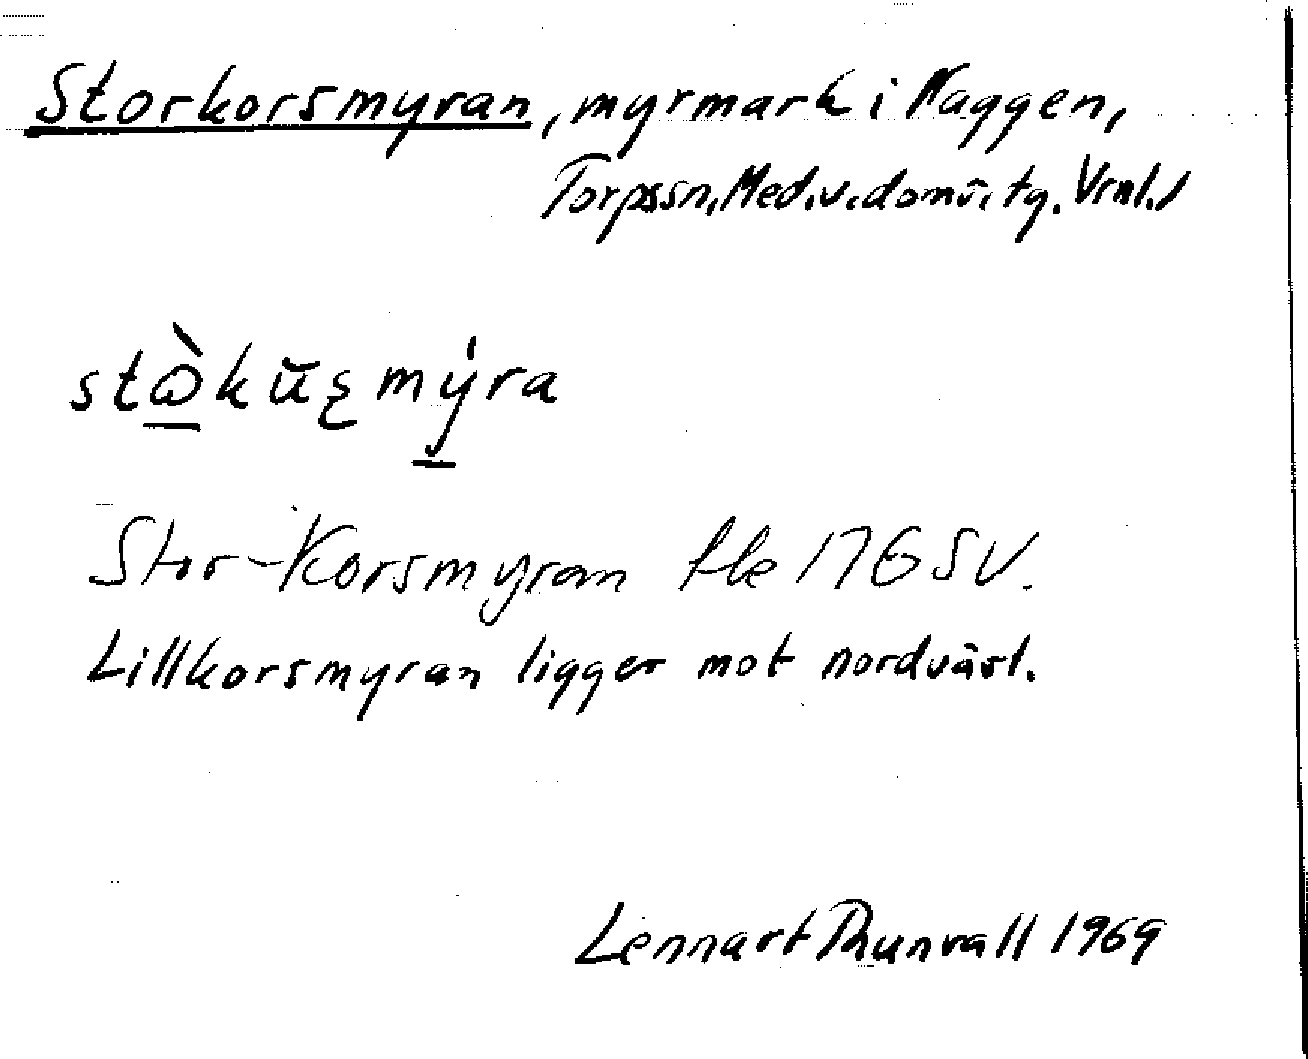 Storkorsmyran, myrmark i Naggen,
Torpssn, Med.v.doms.tg. Vrnl.
Stor-Korsmyran tle 17G SV.
Lillkorsmyran ligger mot nordväst.
Lennart Thunvall 1969